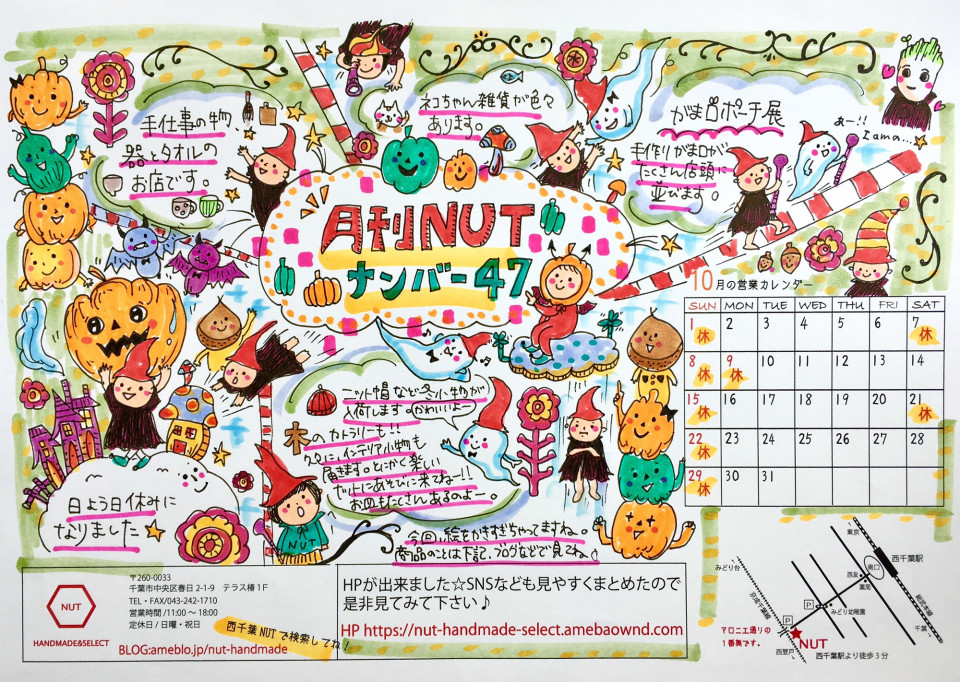 手仕事の物、
器とタオルの
お店です。
ネコちゃん雑貨が色々
あります。
がま口ポーチ展
手作りがま口が
たくさん店頭に
並びます。
あー!!
Zama...
月刊NUT
ナンバー47
10月の営業カレンダー
SUN MON TUE WED THU FRI SAT
1 2 3 4 5 6 7
休 休
8 9 10 11 12 13 14
休 休
15 16 17 18 19 20 21
休 休
22 23 24 25 26 27 28
休
29 30 31
休
ニット帽など冬小物が
入荷します。かわいいよー
木のカトラリーも!!
インテリア小物も
届きます。とにかく楽しい
ナットにあそびに来てねー!!
お皿もたくさんあるのよー。
NUT
日よう日休みに
なりました
今回、絵をかきすぎちゃってますね。
商品のことは下記、ブログなどで見てね
NUT
HANDMADE&SELECT
〒260-0033
千葉市中央区春日 2-1-9 テラス椿 1F
TEL・FAX/043-242-1710
営業時間 /11:00 〜 18:00
定休日 / 日曜・祝日
BLOG:ameblo.jp/nut-handmade
西千葉NUTで検索してね!
HPが出来ました☆SNSなども見やすくまとめたので
是非見てみて下さい♪
HP https://nut-handmade-select.amebaownd.com/
東京
西千葉駅
南口
みどり台
西友
薬局
総武本線
京成千葉線
P
みどり幼稚園
P
千葉
マロニエ通りの
1番奥です。
NUT
西登戸
西千葉駅より徒歩3分